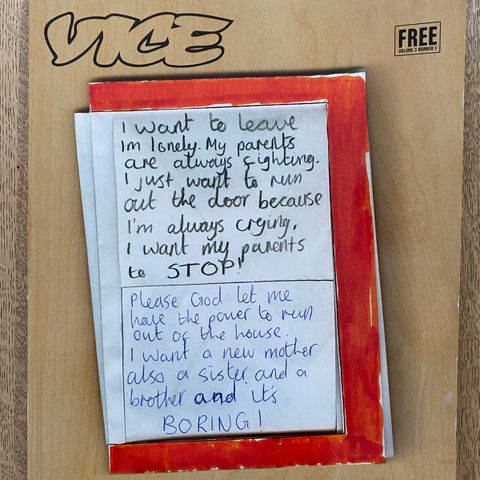 VICE
FREE
VOLUME 3 NUMBER 1
I want to leave
Im lonely. My parents
are always fighting.
I just want to run
out the door because
I'm always crying,
I want my parents
to STOP!
Please God let me
have the power to run
out of the house.
I want a new mother
also a sister and a
brother and it's
BORING!